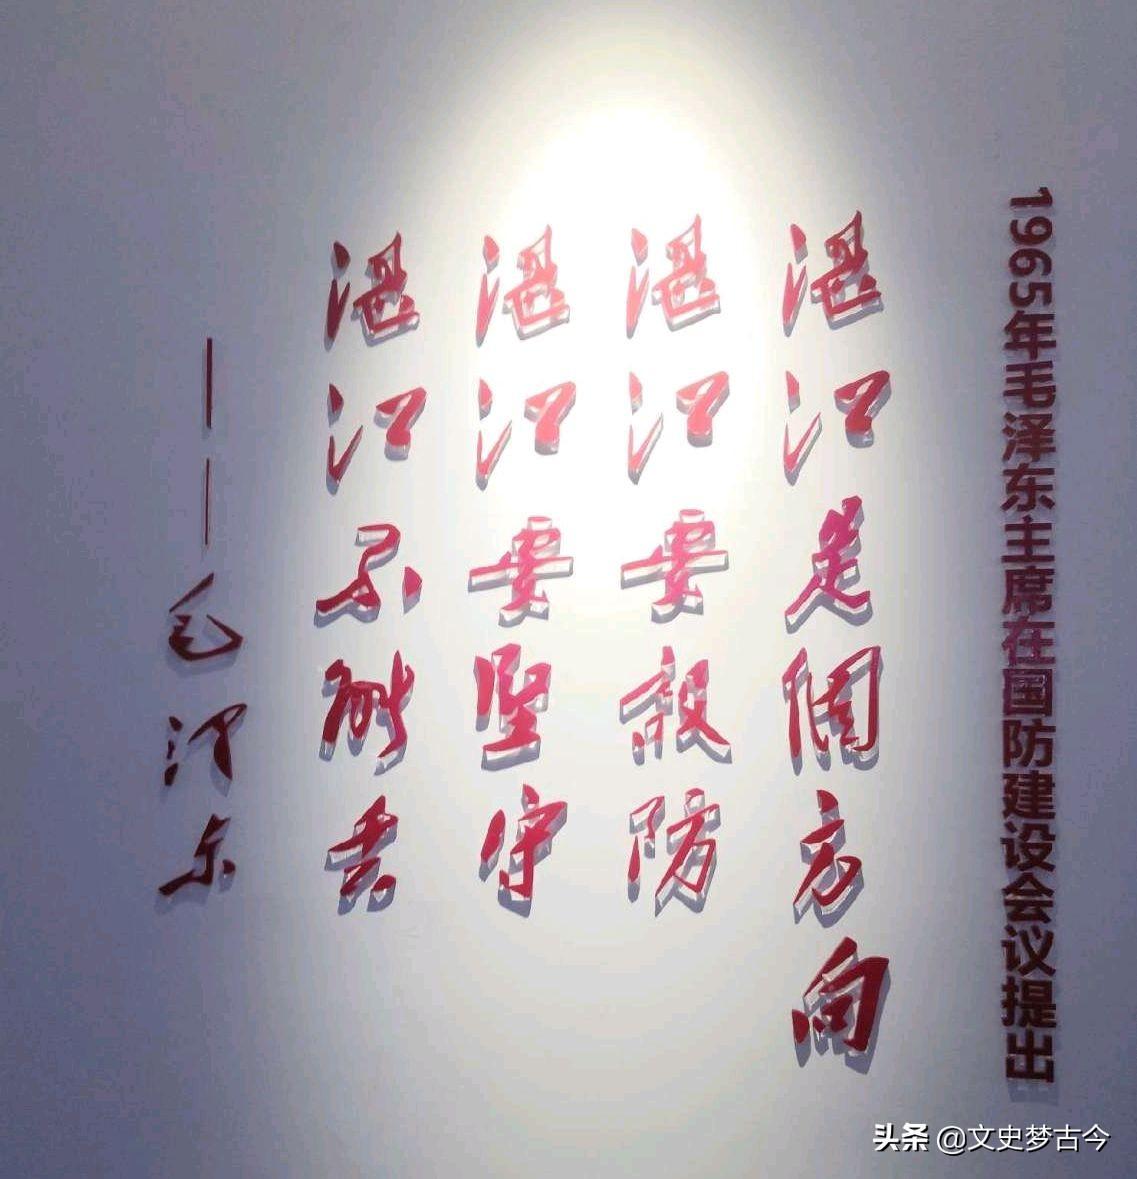 1965年毛泽东主席在国防建设会议提出
湛江是個方向
湛江要設防
湛江要堅守
湛江不能丢
——毛泽东
头条 @文史梦古今